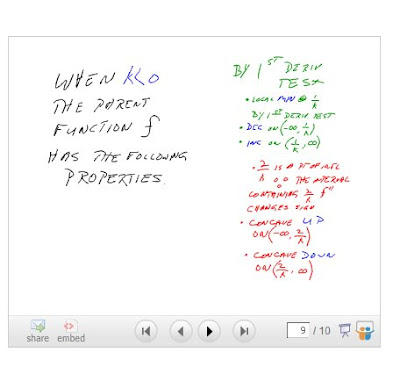 WHEN K<0
THE PARENT
FUNCTION f
HAS THE FOLLOWING
PROPERTIES.
BY 1ST DERIV
TEST
• LOCAL MIN @ 1/K
BY 1ST DERIV TEST
• DEC ON (-∞, 1/K)
• INC ON (1/K, ∞)
• 2/K IS A PT OF INFL
THE INTERVAL
CONTAINING 2/K f"
CHANGES SIGN
• CONCAVE UP
ON (-∞, 2/K)
• CONCAVE DOWN
ON (2/K, ∞)
share embed 9 / 10